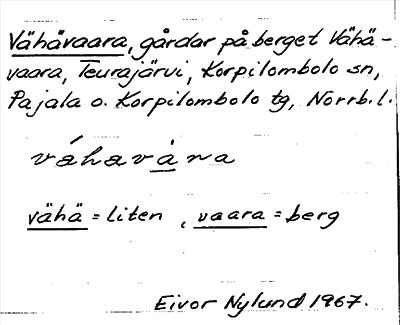 Vähävaara, gårdar på berget Vähä-
vaara, Teurajärvi, Korpilombolo sn,
Pajala o. Korpilombolo tg, Norrb.l.
váhavȧra
vähä = liten, vaara = berg
Eivor Nylund 1967.